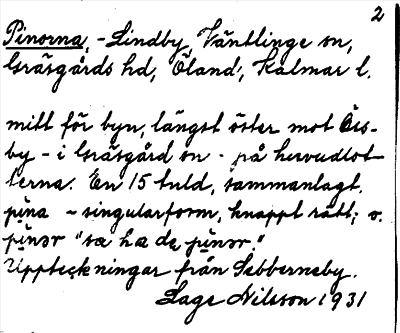 2
Pinorna, - Lindby, Väntlinge sn,
Gräsgårds hd, Öland, Kalmar l.
mitt för byn, längst öster mot Örs-
by - i Gräsgård sn - på huvudlot-
terna. En 15 tuld, sammanlagt.
pina - singularform, knappt rätt; o.
pinər "sa ha də pinər."
Uppteckningar från Sebberneby.
Lage Nilsson 1931